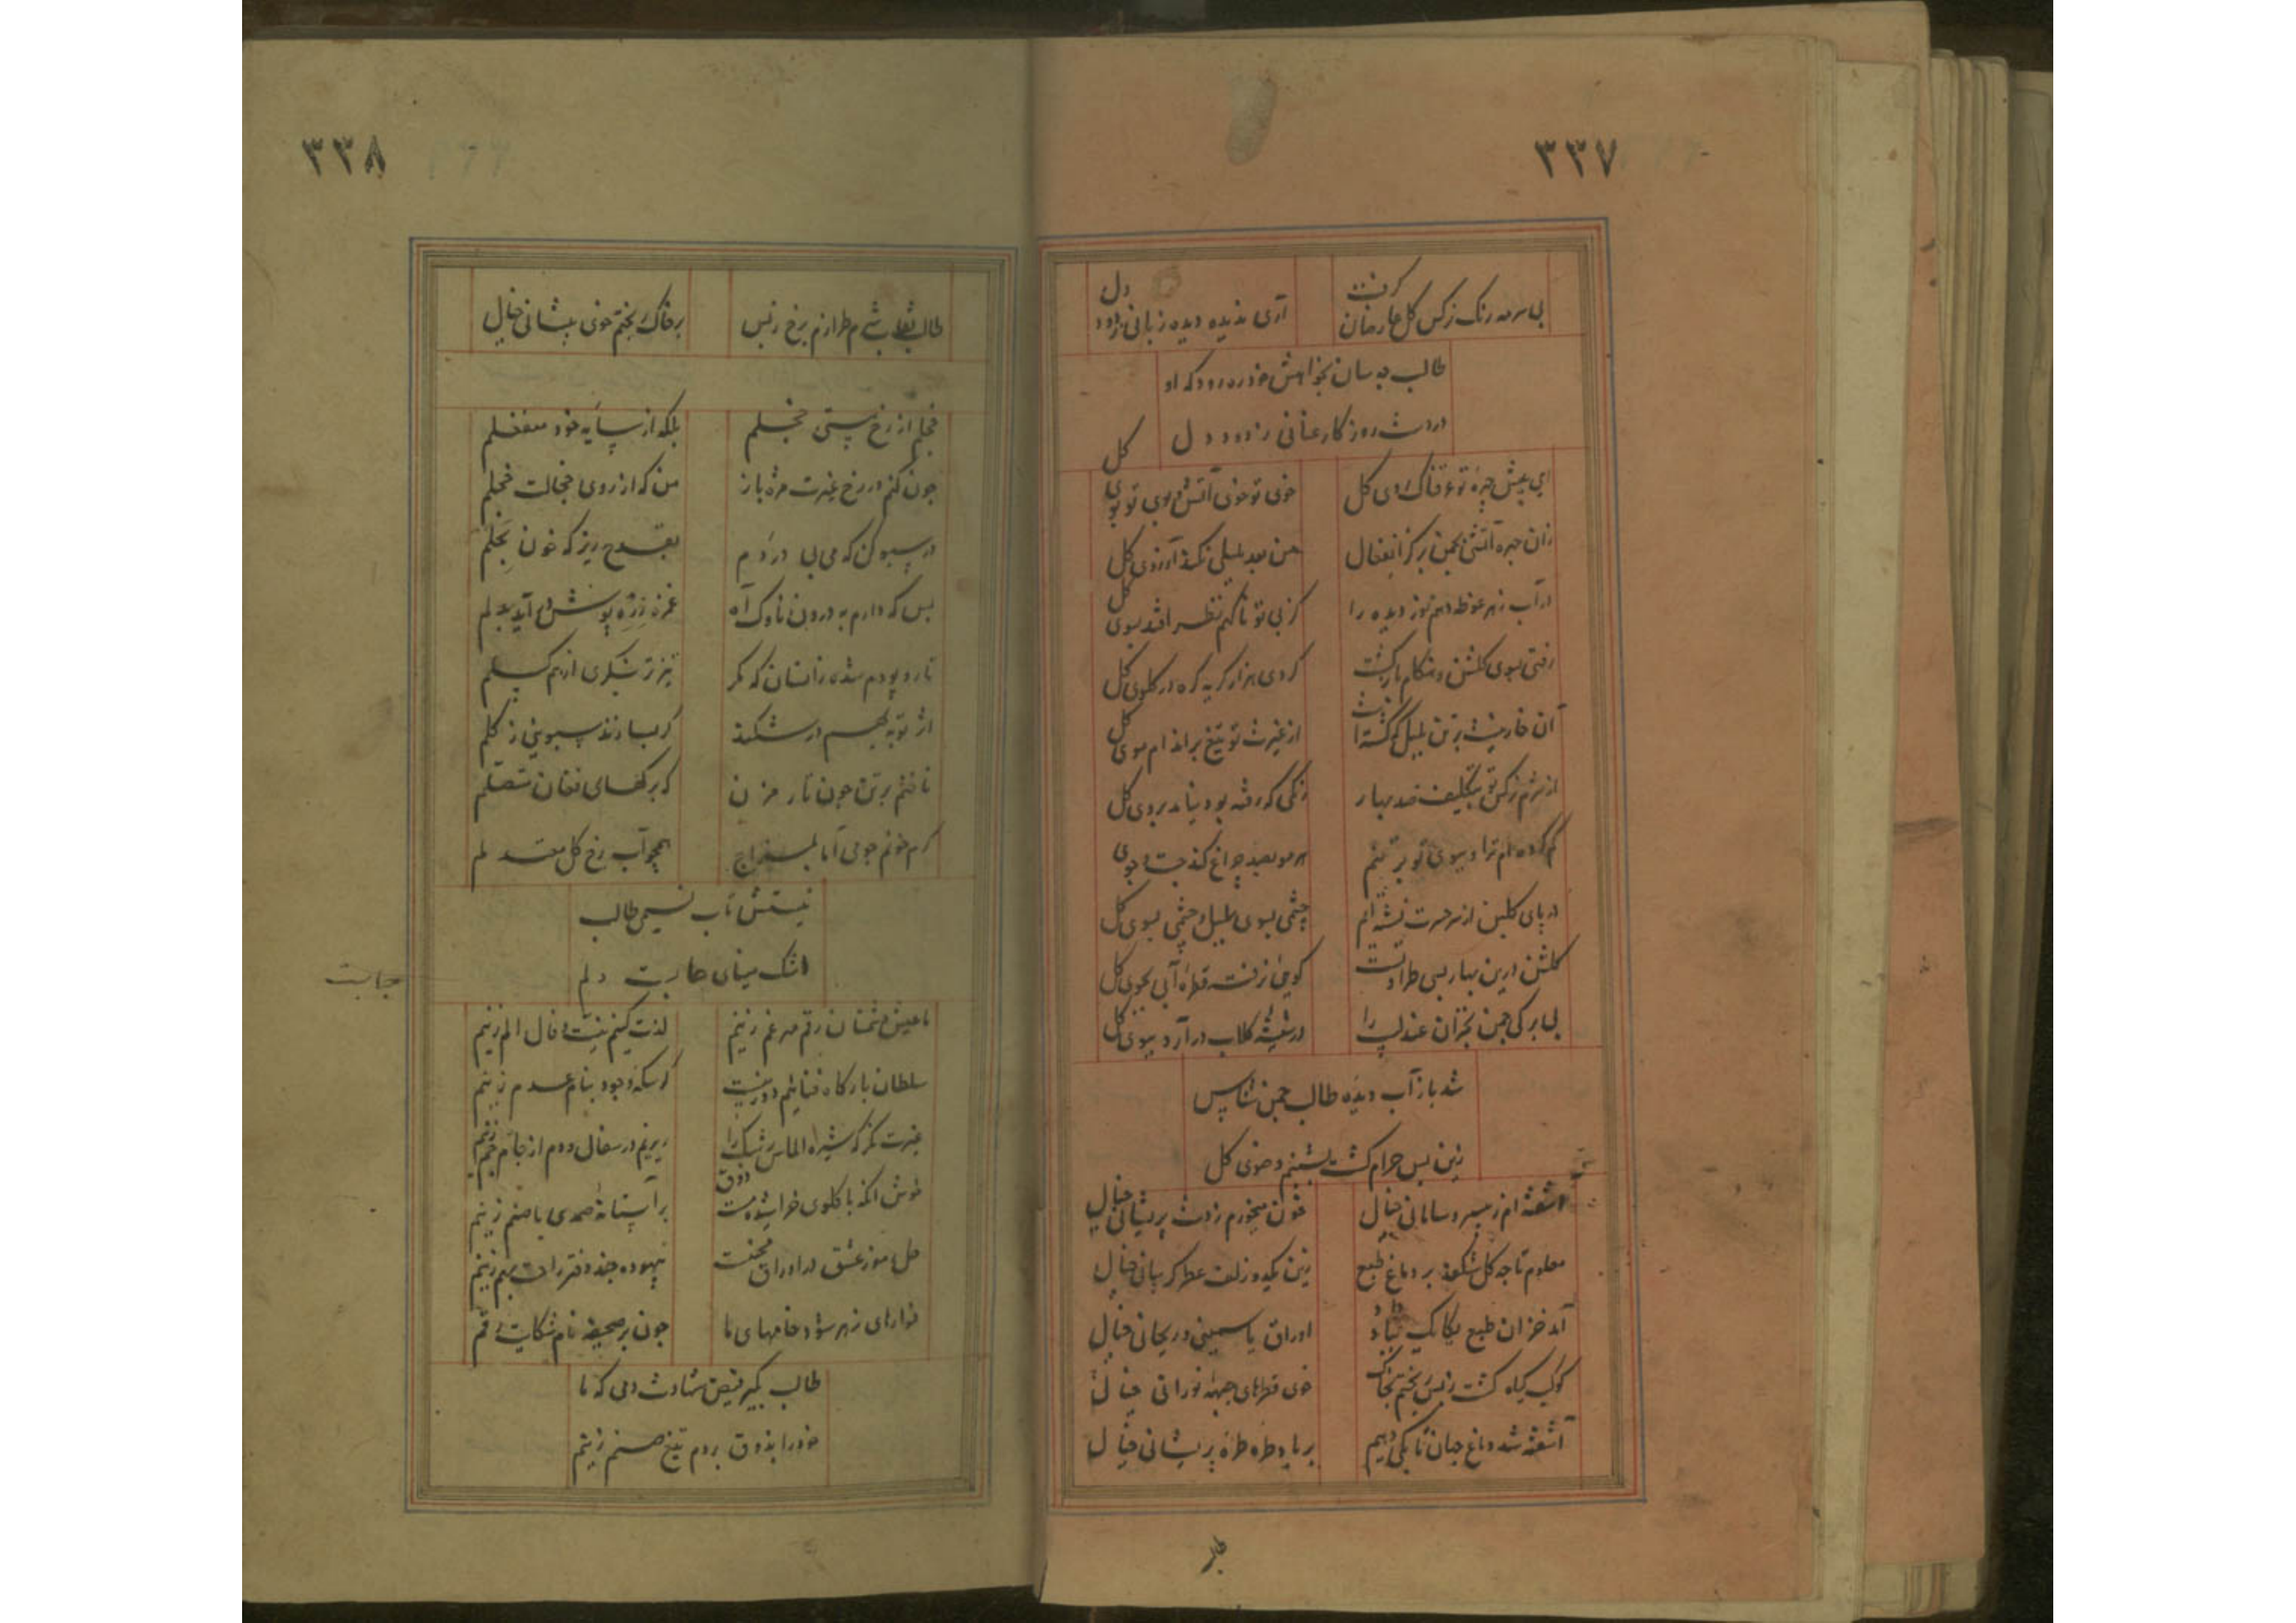 ۳۳۷
بی سرمه رنک نرکس کل عارضان کرفت
آری ندیده دیده زبانی زدود دل
طالب چه سان بخواهش خود ره رود که او
در دست روزکار عنانی ندود دل
ای پیش چهرهٔ تو عرقناک روی کل
خوی تو خوی آتش و بوی تو بوی کل
زان چهره آتشی بچمن برکز انفعال
من بعد بلبلی نکند آرزوی کل
در آب زهر غوطه دهم نوز دیده را
کز بی تو ناکهم نظر افتد بسوی کل
رفتی بسوی کلشن و هنکام بازکشت
کردی هزار کریه کره در کلوی کل
آن خار نیست بر تن بلبل که کشته است
از غیرت تو تیغ بر اندام موی کل
از شرم نرکس تو بتکلیف صد بهار
رنکی که رفته بود نیامد بروی کل
کم کرده ام ترا و ببوی تو بر تنم
هر مو بصد چراغ کند جست و جوی
در پای کلبن از سر حسرت نشسته ام
چشمی بسوی بلبل و چشمی بسوی کل
کلشن درین بهار بسی طراوتست
کویی نرفته قطره آبی بجوی کل
بی برکی چمن بخزان عندلیب را
در شیشه کلاب در آرد ببوی کل
شد باز آب دیده طالب چمن شناس
زین پس حرام کشت بشبنم وضوی کل
آشفته ام ز بی سر و سامانی خیال
خون میخورم ز دست پریشانی خیال
معلوم تا چه کل شکفد بر دماغ طبع
زین یکدو زلف عطر کریبانی خیال
آمد خزان طبع یکایک بباد داد
اوراق یاسمینی و ریحانی خیال
کوکب کیاه کشت ز بس ریختم بخاک
خوی قطرهای جبهه نورانی خیال
آشفته شد دماغ جهان تا بکی دهیم
بر باد طره طره پریشانی خیال
۳۳۸
برخاک ریختم خوی پیشانی خیال
خجلم از رخ هستی خجلم
بلکه از سایه خود منفعلم
چون کنم در رخ غیرت مژه باز
من که از روی خجالت خجلم
در سبو کن که می بی دردم
بقدح ریز که خون بحلم
بس که دارم به درون ناوک آه
غمزه زره پوش در آید بدلم
تار و پودم شده زانسان که مکر
نیز تر بنکری از هم کسلم
از توبه بهم در شکند
کر بسازند سبویی ز کلم
ناخنم بر تن چون تار مزن
که برکهای فغان متصلم
کرم خونم چو می اما بمزاج
همچو آب رخ کل معتدلم
نیستش تاب نسیمی طالب
اشک مینای حبابست دلم
حبابست
ما عیش دشمنان رقم مهر غم زنیم
لذت کشیم نیت و فال الم زنیم
سلطان بارکاه فنائیم دور نیست
کر سکه وجود بنام عدم زنیم
غیرت نکر که شیره الماس رشک را
ریزیم در سفال و دم از جام جم زنیم
خوش آنکه با کلوی خراشیده مست ذوق
بر آستانه صمدی یا صنم زنیم
حل رموز عشق در اوراق محنتست
بیهوده چند دفتر راحت بهم زنیم
فوارهای زهر شود خامهای ما
چون بر صحیفه نام شکایت رقم
طالب بکیر فیض شهادت دمی که ما
خود را بذوق بر دم تیغ صنم زنیم